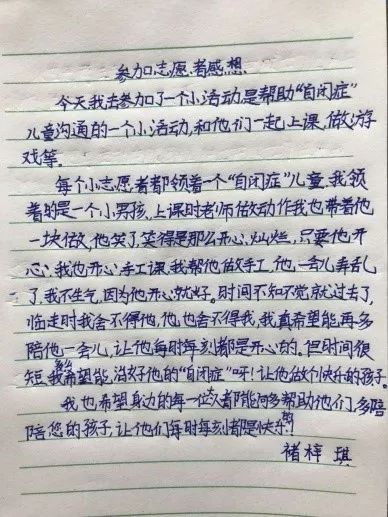 参加志愿者感想
今天我去参加了一个小活动是帮助“自闭症”
儿童沟通的一个小活动,和他们一起上课,做游
戏等。
每个小志愿者都领着一个“自闭症”儿童,我领
着的是一个小男孩,上课时老师做动作我也带着他
一块做,他笑了,笑得是那么开心,灿烂,只要他开
心,我也开心,手工课,我帮他做手工,他一会儿弄乱
了,我不生气,因为他开心就好。时间不知不觉就过去了,
临走时我舍不得他,他也舍不得我,我真希望能再多
陪他一会儿,让他每时每刻都是开心的。但时间很
短,我希望能治好他的“自闭症”呀!让他做个快乐的孩子
我也希望身边的每一位人都能多帮助他们,多陪
陪您的孩子,让他们每时每刻都是快乐的
褚梓琪